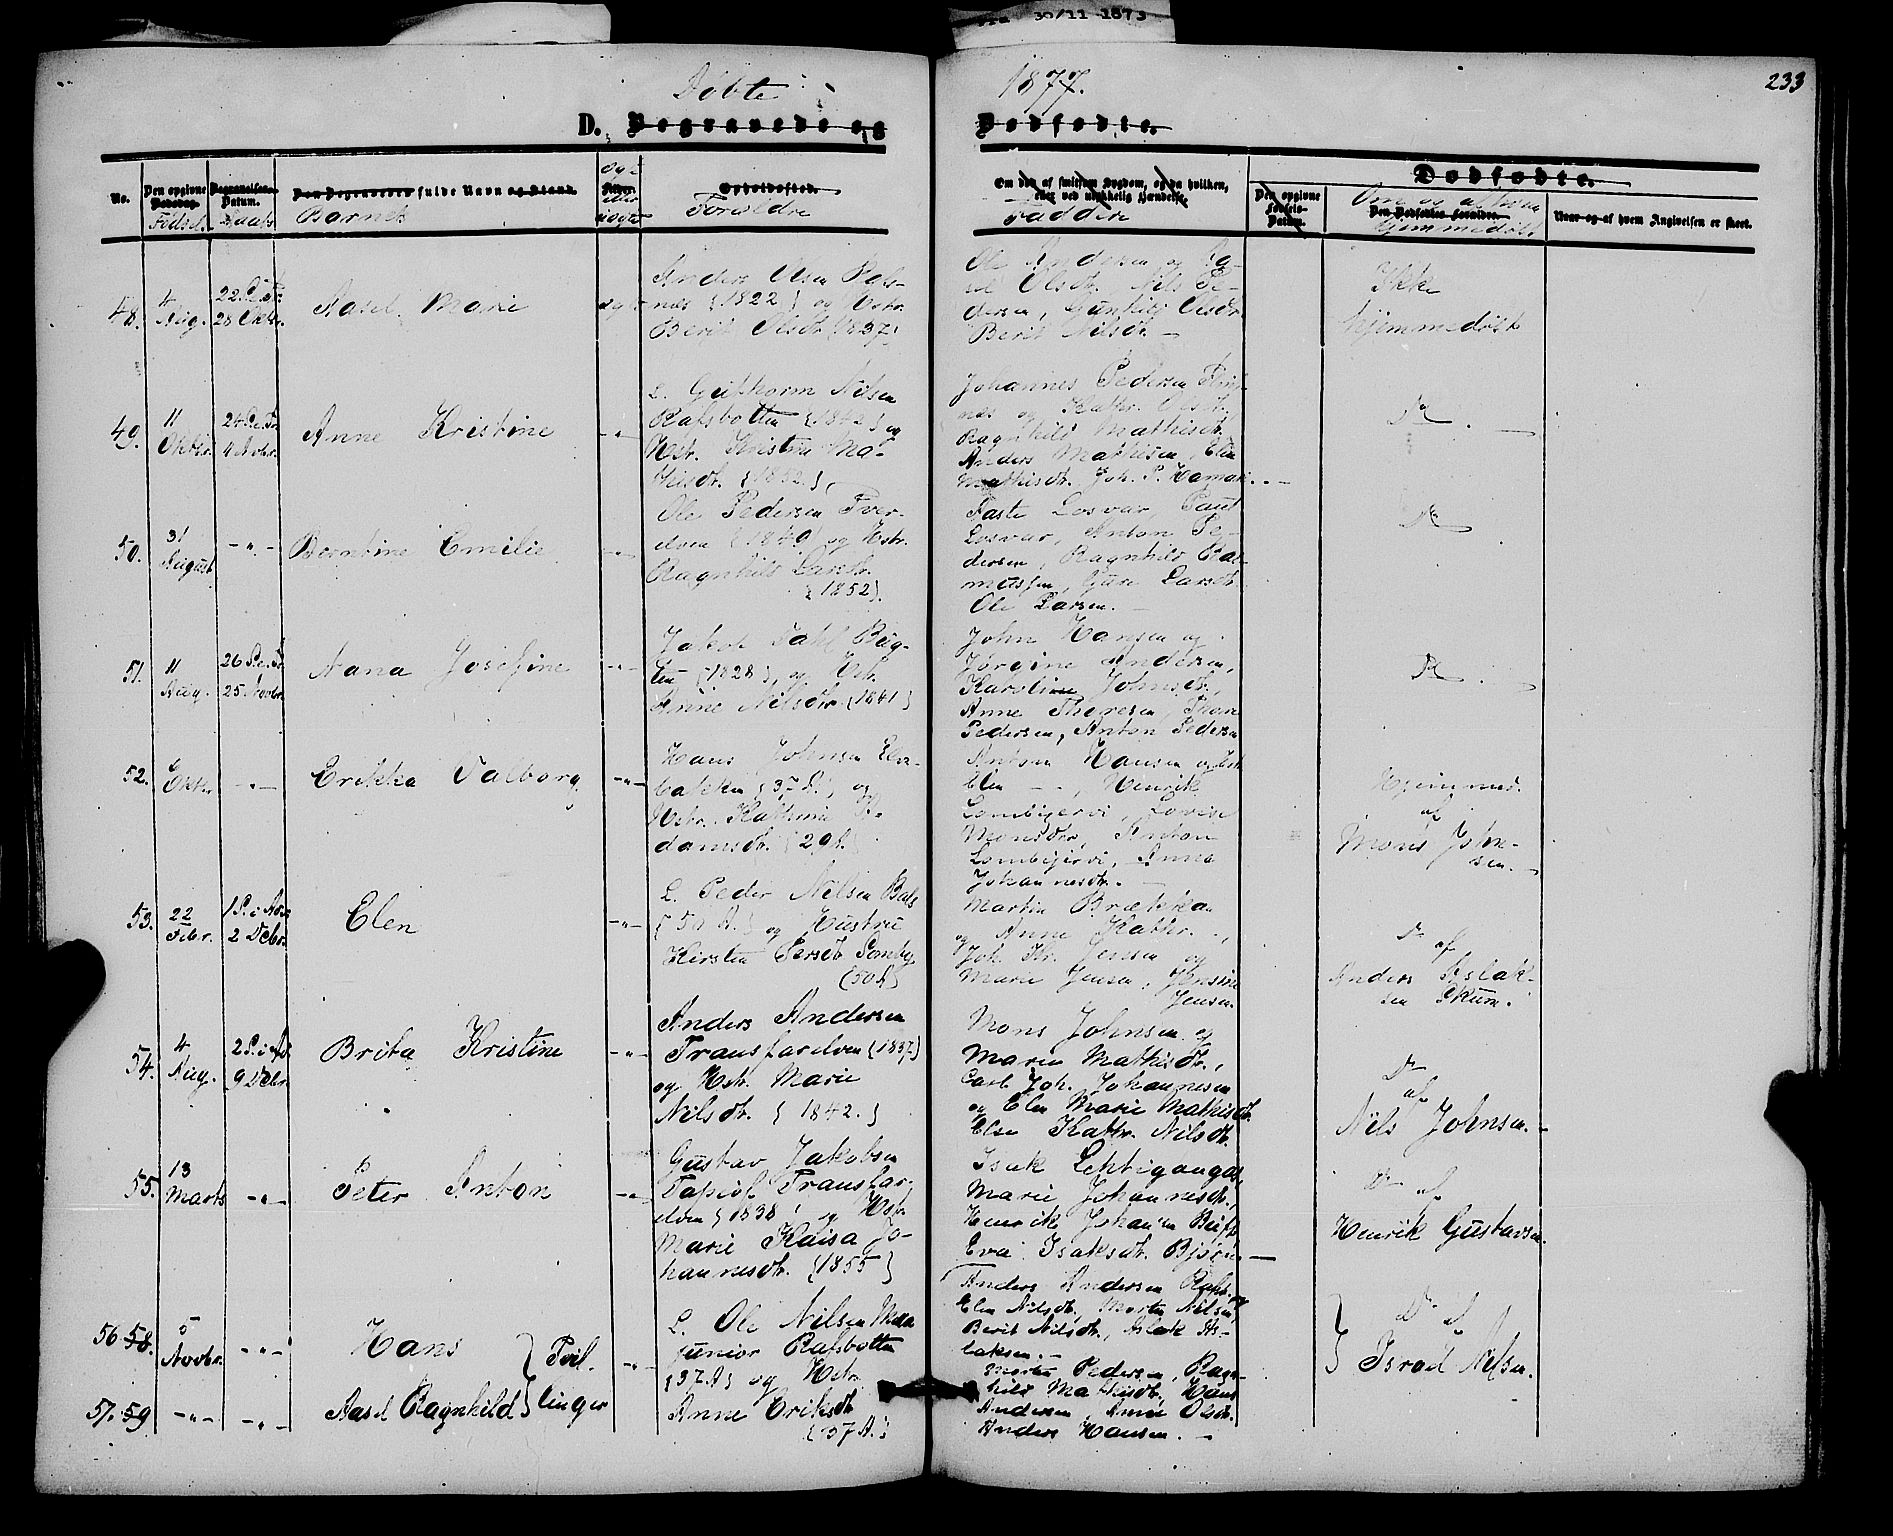 30/11 1873
233
Döbte 1877.
D. Begravede og Dødfødte.
No.
Den opgivne Dødsdag. Födsel.
Begravelses-Datum. Daabs
Den Begravedes fulde Navn og Stand. Barnets
Opholdssted. Forældre
Om den af smitsom Sygdom, og da hvilken,
eller ved ulykkelig Hændelse.
Faddere
Den opgivne Fødsels-Datum.
Dødfødte.
Den Dødfødtes Forældre.
hjemmedöbt
Naar og af hvem Angivelsen er skeet.
48. 4 Aug. 28 Oktbr. Aasel Marie
Anders Olsen Bals-
næs {1822} og Hstr.
Berit Olsdtr. {1837}
Ole Andersen og
Olsdtr. Nils Pe-
dersen, Gunhild Olsdtr.
Berit Nilsdtr.
Ikke
hjemmedöbt
49. 11 Oktbr. 4 Novbr. Anne Kristine
L. Guthorm Nilsen
Rafsbotten {1842} og
Hstr. Kristine Ma-
thisdtr. {1852.}
Johannes Pedersen
næs og Kathr. Olsdtr.
Ragnhild Mathisdtr.
Anders Mathisen, Elen
Mathisdtr. Joh. P. Hamari
Do
50. 31 August -"- Berntine Emilie
Ole Pedersen Tver-
elven {1849} og Hstr.
Ragnhild Larsdtr.
{1852}.
Faste Losvar, Paul
Losvar, Anton Pe-
dersen, Ragnhild Ras-
mussen, Gure Larsdtr.
Ole Larsen.
Do
51. 11 Aug. 26 S.e.Tr. 25 Novbr. Nana Josefine
Jakob Dahl Bug-
ten {1828}, og Hstr.
Anne Nilsdtr. {1841}
John Hansen og
Jørgine Andersen,
Karoline Johnsdtr.,
Anne Theresen, Thore
Pedersen, Anton Pedersen
Do
52. Oktbr. -"- Erikka Valborg
Hans Johnsen Elve-
bakken {37 A}, og
Hstr. Kathrine A-
damsdtr. {29 A.}
Antson Hansen og Hstr.
Elen - - , Henrik
Lombigervi, Lovise
Monsdtr, Anton
Lombijervi, Anna
Johannesdtr.
Hjemmed.
af
Mons John-
sen.
53. 22 Febr. 1 S. i Adv. 2 Debr. Elen
L. Peder Nilsen Bals
{50 A.} og Hustru
Kirsten Persdtr. Somby
{50 A}
Martin Brækka
og Anne Kathr. -,
Joh. Kr. Jensen og
Marie Jensen, Jensine
Jensen.
Do af
Anders Aslak-
sen Skum.
54. 4 Aug. 2 S. i Ad. 9 Debr. Brita Kristine
Anders Andersen
Transfarelven {1837}
og Hstr. Marie
Nilsdtr. {1842.}
Mons Johnsen og
Maren Mathisdtr.,
Carl Joh. Johannesen
og Elen Marie Mathisdtr.
Else Kathr. Nilsdtr.
Do
af
Nils Johnsen.
55. 13 Marts -"- Peter Anton
Gustav Jakobsen
Tapiol Transfar-
elven {1838} og Hstr.
Marie Kaisa Jo-
hannesdtr. {1855}
Isak Lehtigangas,
Marie Johannesdtr.,
Henrik Johansen
Eva Isaksdtr. Bjørn
Do af
Henrik Gustavsen.
56 58. 5 Novbr. -"- Hans } Tvil-
57. 59 -"- -"- Aasel Ragnhild } linger
L. Ole Nilsen
junior Rafsbotten
{37 A} og Hstr.
Anne Eriksdtr.
{37 A.}
Anders Andersen Rafsb.
Elen Nilsdtr., Morten Nilsen,
Berit Nilsdtr., Aslak As-
laksen.
Morten Pedersen, Ragn-
hild Mathisdtr., Hans
Andersen Anne Olsdtr.
Anders Hansen.
Do af
Isrod Nilsen.